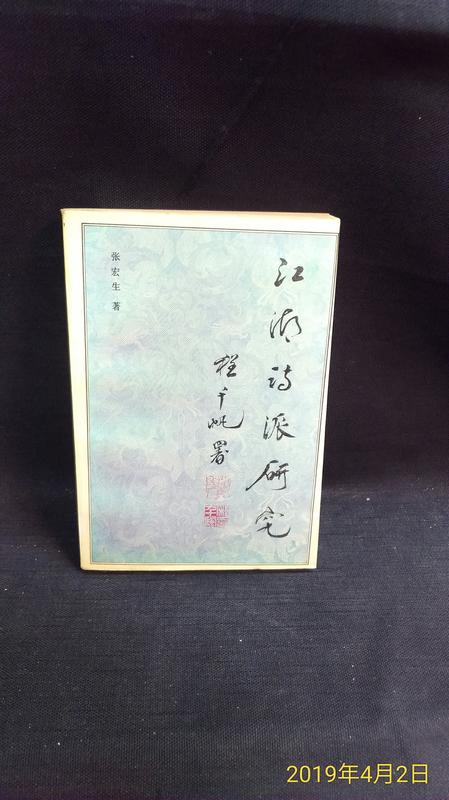 江湖诗派研究
程千帆署
张宏生 著
2019年4月2日